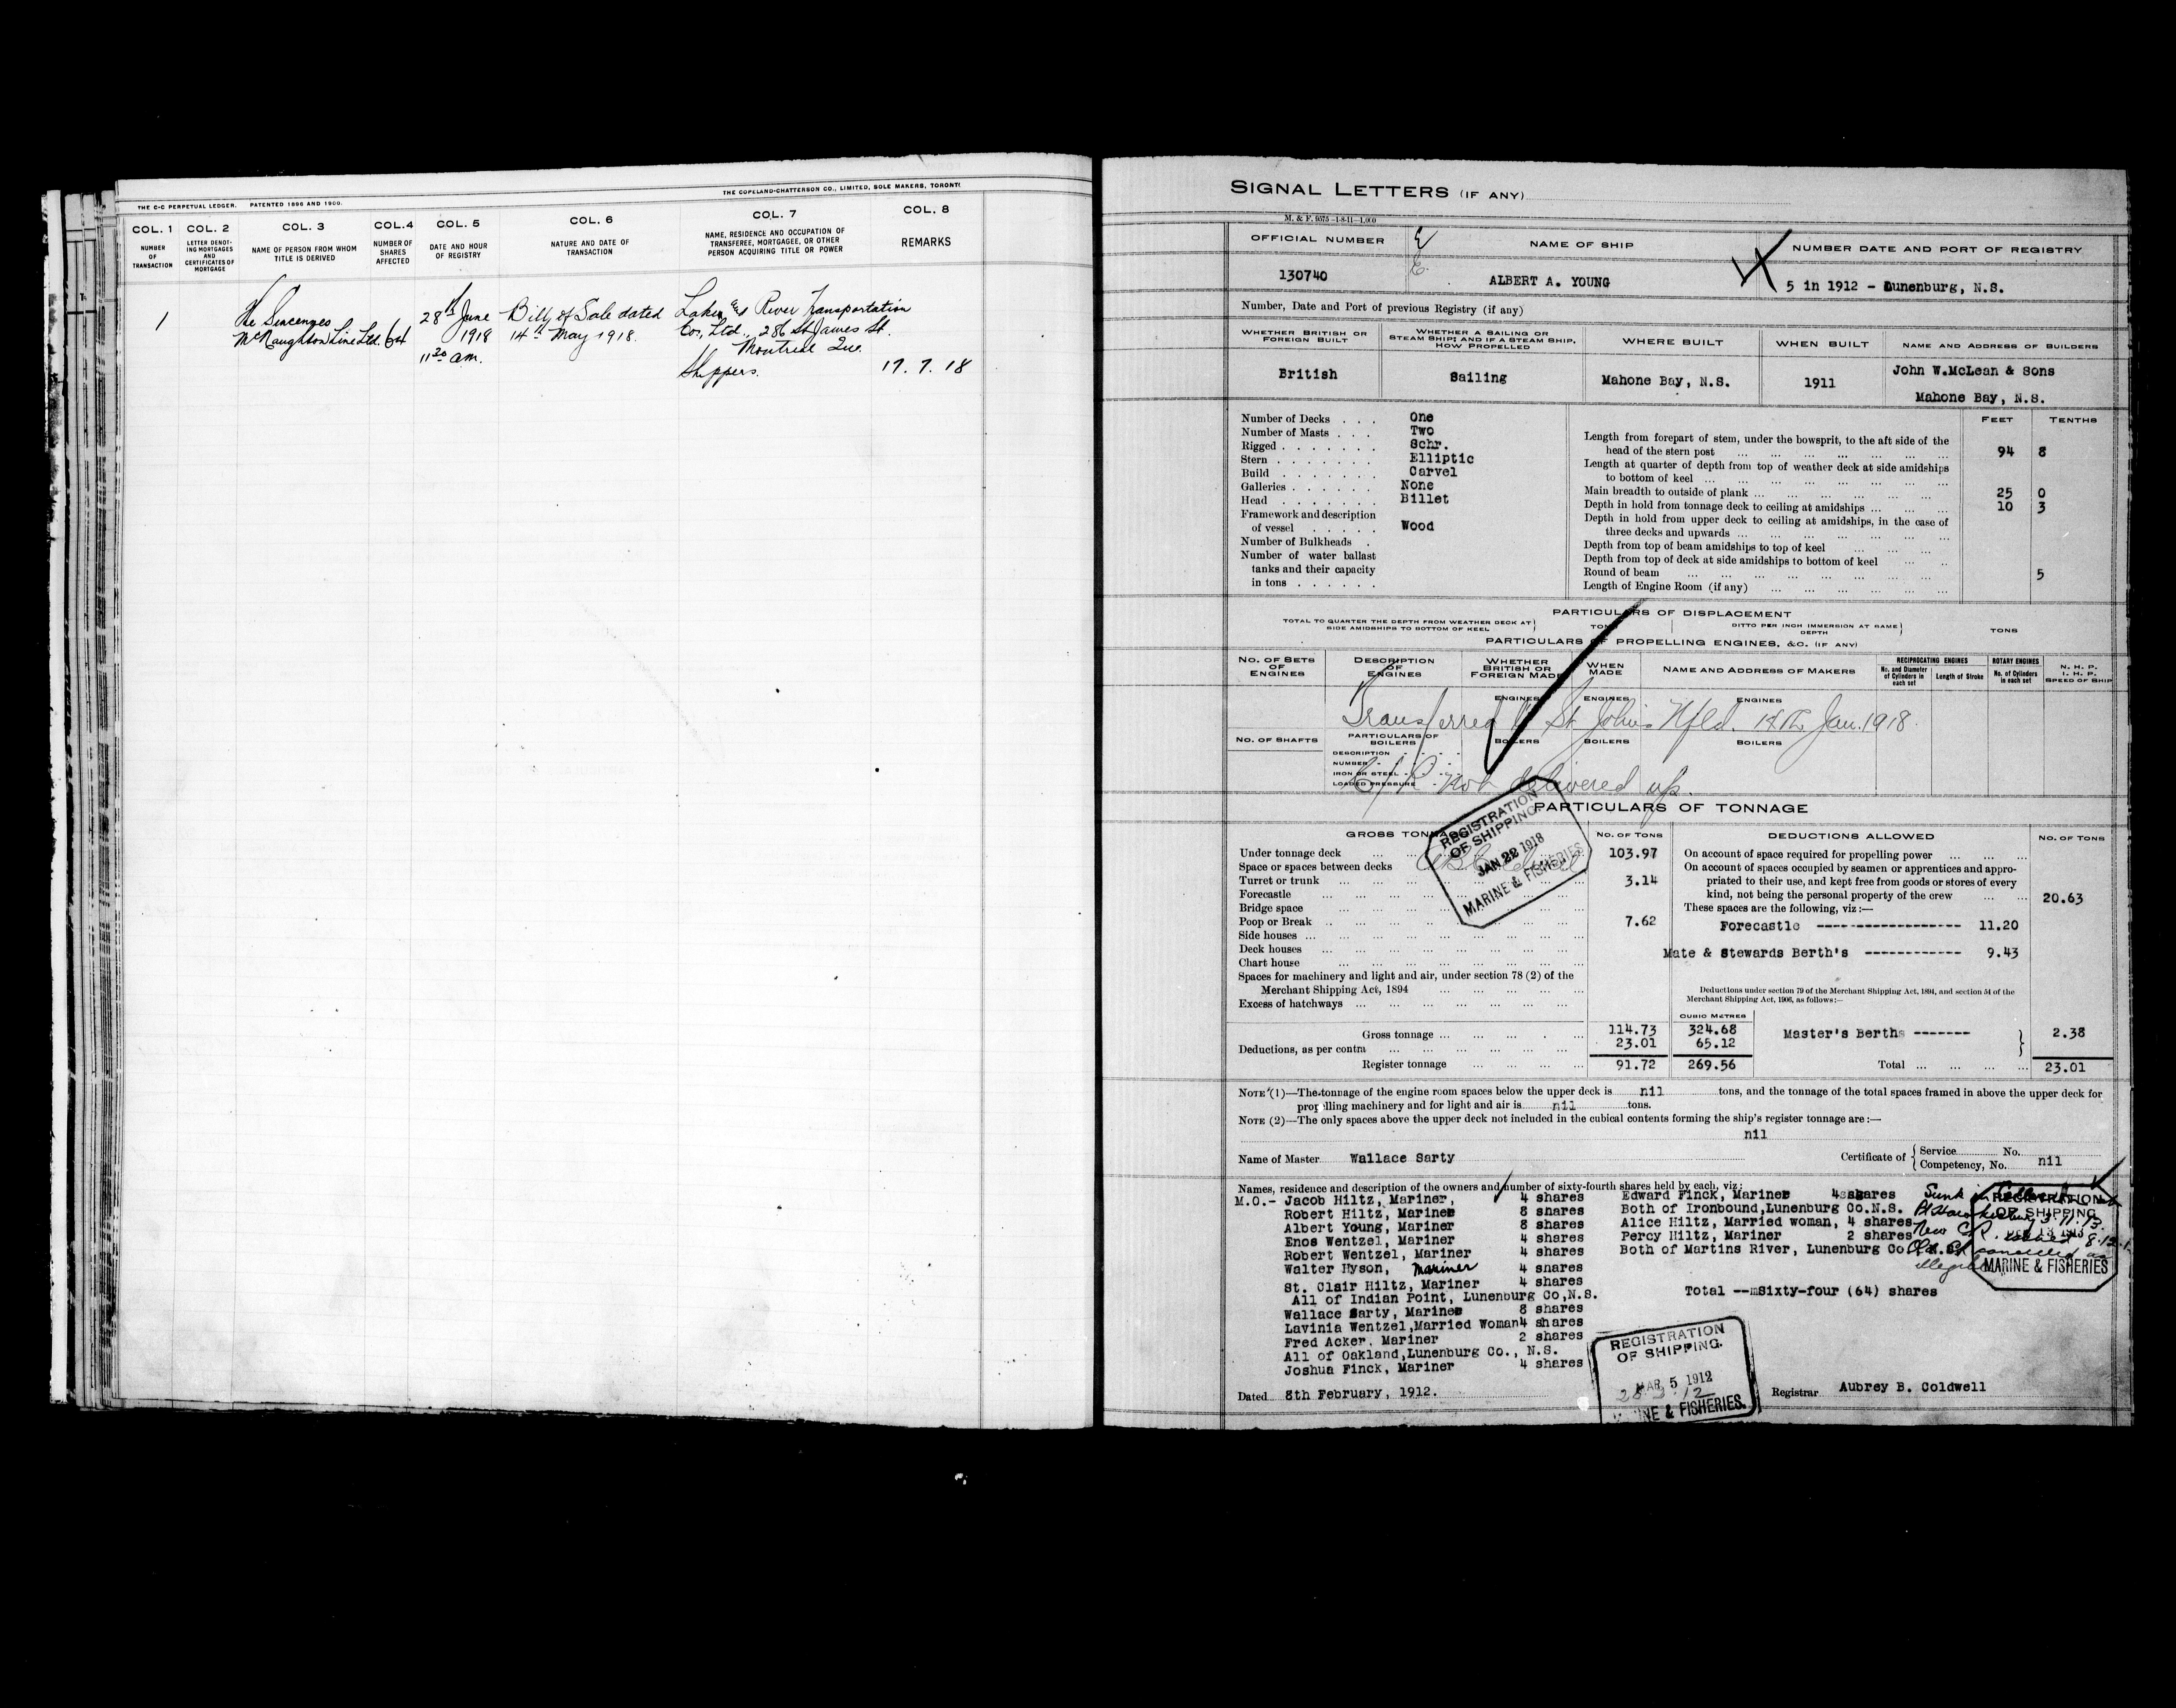 THE C-C PERPETUAL LEDGER. PATENTED 1896 AND 1900.
THE COPELAND-CHATTERSON CO., LIMITED, SOLE MAKERS, TORONTO
COL. 1 COL. 2 COL. 3 COL.4 COL. 5 COL. 6 COL. 7 COL. 8
NUMBER OF TRANSACTION
LETTER DENOTING MORTGAGES AND CERTIFICATES OF MORTGAGE
NAME OF PERSON FROM WHOM TITLE IS DERIVED
NUMBER OF SHARES AFFECTED
DATE AND HOUR OF REGISTRY
NATURE AND DATE OF TRANSACTION
NAME, RESIDENCE AND OCCUPATION OF TRANSFEREE, MORTGAGEE, OR OTHER PERSON ACQUIRING TITLE OR POWER
REMARKS
1 The Sincennes 28th June Bill of Sale dated Lake and River Transportation
McNaughton Line Ltd. 64 1918 14th May 1918. Co., Ltd., 286 St James St.
11 30 am. Montreal Que.
Shippers. 17. 7. 18
SIGNAL LETTERS (IF ANY)
M. & F. 9575-1-8-11-1,000
OFFICIAL NUMBER NAME OF SHIP NUMBER DATE AND PORT OF REGISTRY
130740 ALBERT A. YOUNG 5 in 1912 - Lunenburg, N.S.
Number, Date and Port of previous Registry (if any)
WHETHER BRITISH OR FOREIGN BUILT
WHETHER A SAILING OR STEAM SHIP; AND IF A STEAM SHIP, HOW PROPELLED
WHERE BUILT WHEN BUILT NAME AND ADDRESS OF BUILDERS
British Sailing Mahone Bay, N.S. 1911 John W.McLean & Sons
Mahone Bay, N.S.
FEET TENTHS
Number of Decks . . . One
Number of Masts . . . Two
Rigged . . . . . . . Schr.
Stern . . . . . . . Elliptic
Build . . . . . . . Carvel
Galleries . . . . . . None
Head . . . . . . . Billet
Framework and description
of vessel . . . . . Wood
Number of Bulkheads .
Number of water ballast
tanks and their capacity
in tons . . . . . .
Length from forepart of stem, under the bowsprit, to the aft side of the
head of the stern post 94 8
Length at quarter of depth from top of weather deck at side amidships
to bottom of keel
Main breadth to outside of plank 25 0
Depth in hold from tonnage deck to ceiling at amidships 10 3
Depth in hold from upper deck to ceiling at amidships, in the case of
three decks and upwards
Depth from top of beam amidships to top of keel
Depth from top of deck at side amidships to bottom of keel
Round of beam 5
Length of Engine Room (if any)
PARTICULARS OF DISPLACEMENT
TOTAL TO QUARTER THE DEPTH FROM WEATHER DECK AT SIDE AMIDSHIPS TO BOTTOM OF KEEL TONS DITTO PER INCH IMMERSION AT SAME DEPTH TONS
PARTICULARS OF PROPELLING ENGINES, &C. (IF ANY)
No. OF SETS OF ENGINES
DESCRIPTION OF ENGINES
WHETHER BRITISH OR FOREIGN MADE
WHEN MADE
NAME AND ADDRESS OF MAKERS
RECIPROCATING ENGINES
No. and Diameter of Cylinders in each set
Length of Stroke
ROTARY ENGINES
No. of Cylinders in each set
N. H. P.
I. H. P.
SPEED OF SHIP
ENGINES ENGINES ENGINES
Transferred to St. John's Nfld. 14th Jan. 1918.
No. OF SHAFTS PARTICULARS OF BOILERS BOILERS BOILERS BOILERS
DESCRIPTION
NUMBER
IRON OR STEEL
LOADED PRESSURE
C/R not delivered up.
PARTICULARS OF TONNAGE
REGISTRATION
OF SHIPPING
JAN 22 1918
MARINE & FISHERIES
GROSS TONNAGE No. OF TONS DEDUCTIONS ALLOWED No. OF TONS
Under tonnage deck 103.97
Space or spaces between decks
Turret or trunk 3.14
Forecastle
Bridge space
Poop or Break 7.62
Side houses
Deck houses
Chart house
Spaces for machinery and light and air, under section 78 (2) of the
Merchant Shipping Act, 1894
Excess of hatchways
On account of space required for propelling power
On account of spaces occupied by seamen or apprentices and appro-
priated to their use, and kept free from goods or stores of every
kind, not being the personal property of the crew 20.63
These spaces are the following, viz:—
Forecastle ------------------ 11.20
Mate & Stewards Berth's ------------ 9.43
Deductions under section 79 of the Merchant Shipping Act, 1894, and section 54 of the
Merchant Shipping Act, 1906, as follows:—
CUBIC METRES
Gross tonnage 114.73 324.68 Master's Berths ------- 2.38
Deductions, as per contra 23.01 65.12
Register tonnage 91.72 269.56 Total 23.01
NOTE (1)—The tonnage of the engine room spaces below the upper deck is nil tons, and the tonnage of the total spaces framed in above the upper deck for
propelling machinery and for light and air is nil tons.
NOTE (2)—The only spaces above the upper deck not included in the cubical contents forming the ship's register tonnage are:—
nil
Name of Master Wallace Sarty Certificate of Service No.
Competency, No. nil
Names, residence and description of the owners and number of sixty-fourth shares held by each, viz:
M.O.- Jacob Hiltz, Mariner, 4 shares
Robert Hiltz, Mariner 8 shares
Albert Young, Mariner 8 shares
Enos Wentzel, Mariner 4 shares
Robert Wentzel, Mariner 4 shares
Walter Hyson, Mariner 4 shares
St. Clair Hiltz, Mariner 4 shares
All of Indian Point, Lunenburg Co,N.S.
Wallace Sarty, Mariner 8 shares
Lavinia Wentzel,Married Woman4 shares
Fred Acker, Mariner 2 shares
All of Oakland,Lunenburg Co., N.S.
Joshua Finck, Mariner 4 shares
Edward Finck, Mariner 4 shares
Both of Ironbound,Lunenburg Co.N.S.
Alice Hiltz, Married woman, 4 shares
Percy Hiltz, Mariner 2 shares
Both of Martins River, Lunenburg Co.
Total --Sixty-four (64) shares
Sunk in
Pt Hawkesbury 3.11.13.
New C.R. issued 8.12.1
Old cancelled as
REGISTRATION
OF SHIPPING
MARINE & FISHERIES
REGISTRATION
OF SHIPPING.
MAR 5 1912
MARINE & FISHERIES.
Dated 8th February, 1912. Registrar Aubrey B. Coldwell